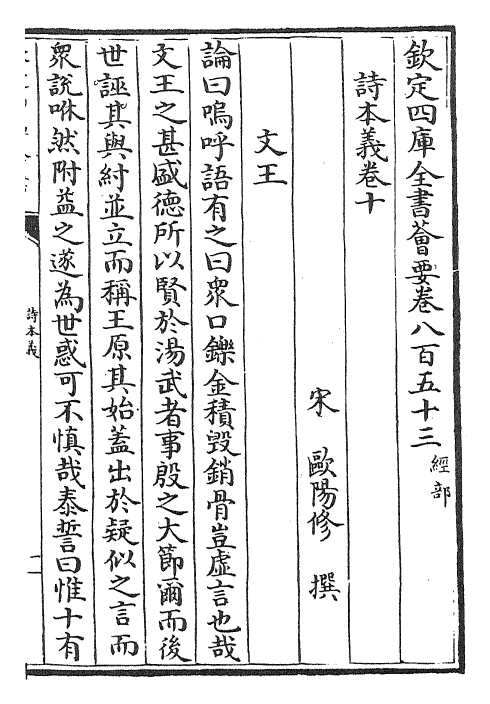 欽定四庫全書薈要卷八百五十三
經部
詩本義卷十
宋 歐陽修 撰
文王
論曰嗚呼語有之曰衆口鑠金積毁銷骨豈虚言也哉
文王之甚盛德所以賢於湯武者事殷之大節爾而後
世誣其與紂並立而稱王原其始蓋出於疑似之言而
衆說咻然附益之遂為世惑可不慎哉泰誓曰惟十有
詩本義